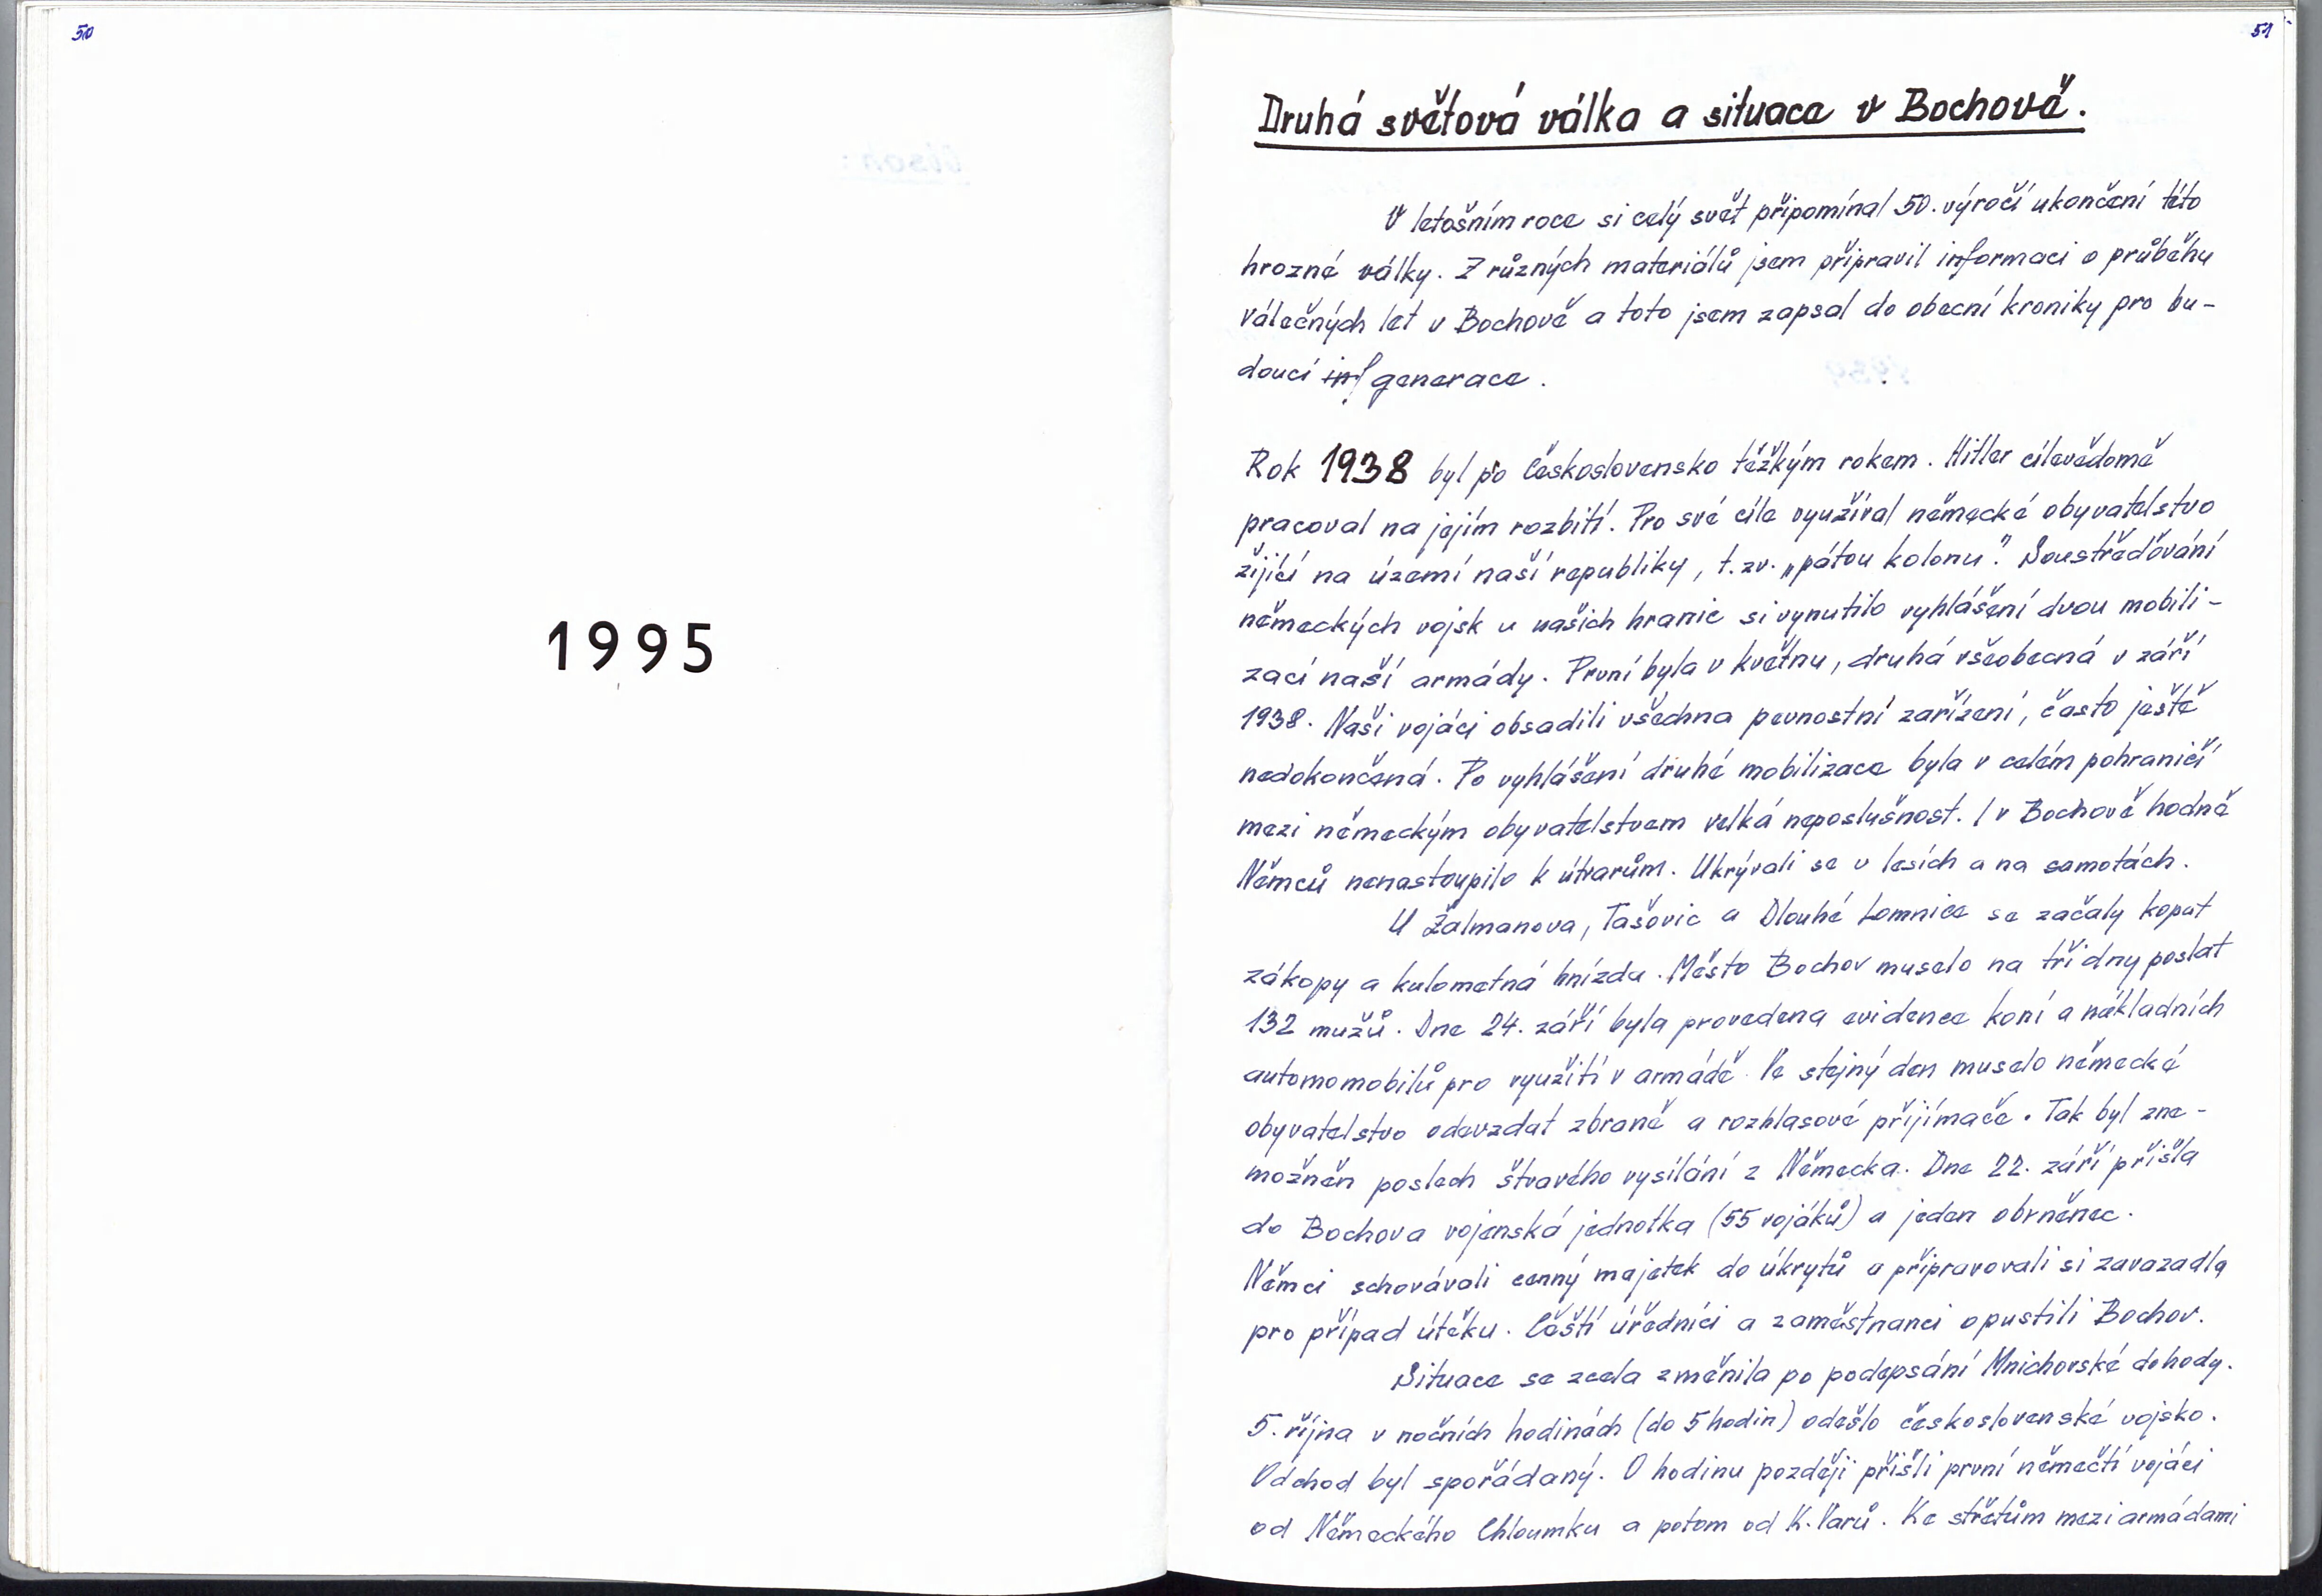 50
1995
51
Druhá světová válka a situace v Bochově.
V letošním roce si celý svět připomínal 50. výročí ukončení této
hrozné války. Z různých materiálů jsem připravil informaci o průběhu
válečných let v Bochově a toto jsem zapsal do obecní kroniky pro bu-
doucí inf generace.
Rok 1938 byl po Československo těžkým rokem. Hitler cílevědomě
pracoval na jejím rozbití. Pro své cíle využíval německé obyvatelstvo
žijící na území naší republiky, t.zv. „pátou kolonu". Soustřeďování
německých vojsk u našich hranic si vynutilo vyhlášení dvou mobili-
zací naší armády. První byla v květnu, druhá všeobecná v září
1938. Naši vojáci obsadili všechna pevnostní zařízení, často ještě
nedokončená. Po vyhlášení druhé mobilizace byla v celém pohraničí
mezi německým obyvatelstvem velká neposlušnost. I v Bochově hodně
Němců nenastoupilo k útvarům. Ukrývali se v lesích a na samotách.
U Žalmanova, Tašovic a Dlouhé Lomnice se začaly kopat
zákopy a kulometná hnízda. Město Bochov muselo na tři dny poslat
132 mužů. Dne 24. září byla provedena evidence koní a nákladních
automomobilů pro využití v armádě. Ve stejný den muselo německé
obyvatelstvo odevzdat zbraně a rozhlasové přijímače. Tak byl zne-
možněn poslech štvavého vysílání z Německa. Dne 22. září přišla
do Bochova vojenská jednotka (55 vojáků) a jeden obrněnec.
Němci schovávali cenný majetek do úkrytů a připravovali si zavazadla
pro případ útěku. Čeští úředníci a zaměstnanci opustili Bochov.
Situace se zcela změnila po podepsání Mnichovské dohody.
5. října v nočních hodinách (do 5 hodin) odešlo československé vojsko.
Odchod byl spořádaný. O hodinu později přišli první němečtí vojáci
od Německého Chloumku a potom od K. Varů. Ke střetům mezi armádami